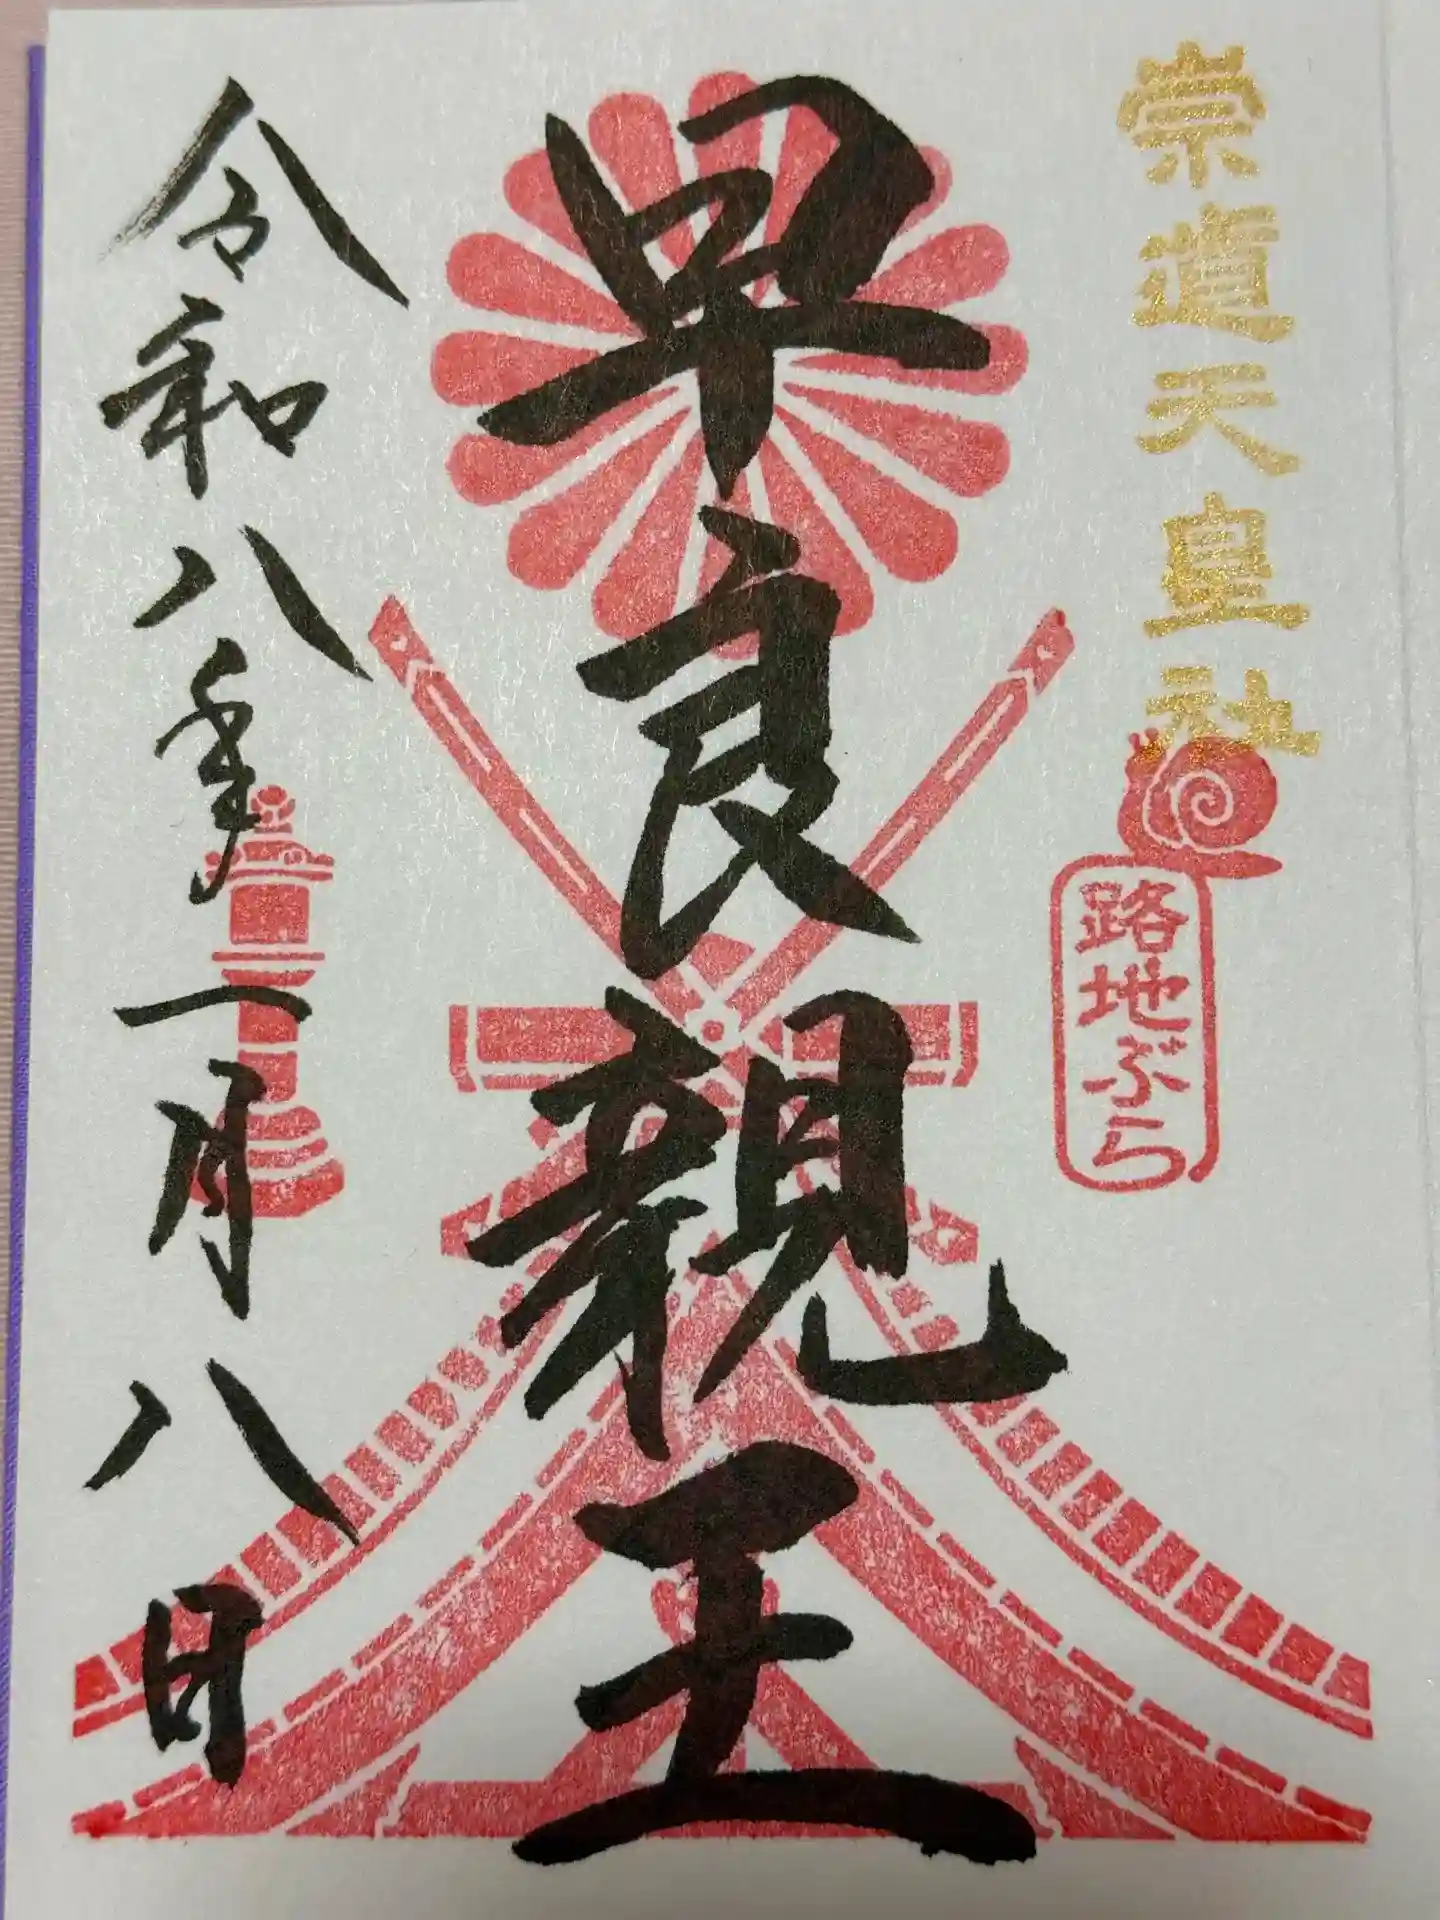 崇道天皇社
路地ぶら
早良親王
令和八年一月八日